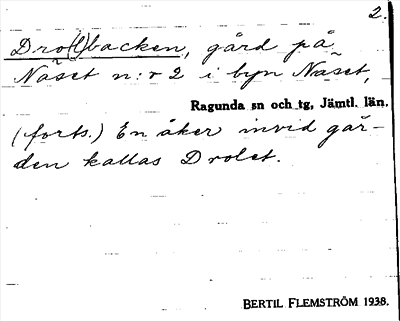 2.
Dro(l)backen, gård på
Näset n:r 2 i byn Näset,
Ragunda sn och tg, Jämtl. län.
(forts.) En åker invid går-
den kallas Drolet.
BERTIL FLEMSTRÖM 1938.